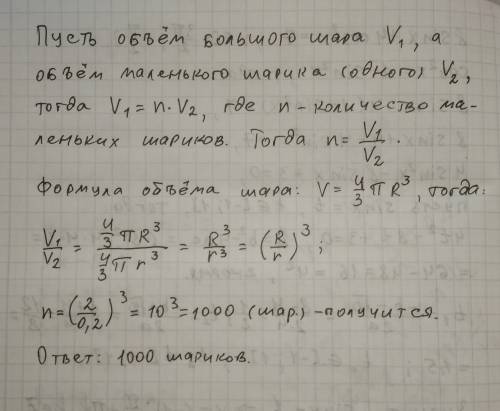 Пусть объём большого шара V₁, а
объём маленького шарика (одного) V₂,
тогда V₁ = n·V₂, где n - количество ма-
леньких шариков. Тогда n = V₁/V₂.
Формула объёма шара: V = 4/3 πR³, тогда:
V₁/V₂ = (4/3 πR³)/(4/3 πr³) = R³/r³ = (R/r)³;
n = (2/0,2)³ = 10³ = 1000 (шар.) - получится.
Ответ: 1000 шариков.